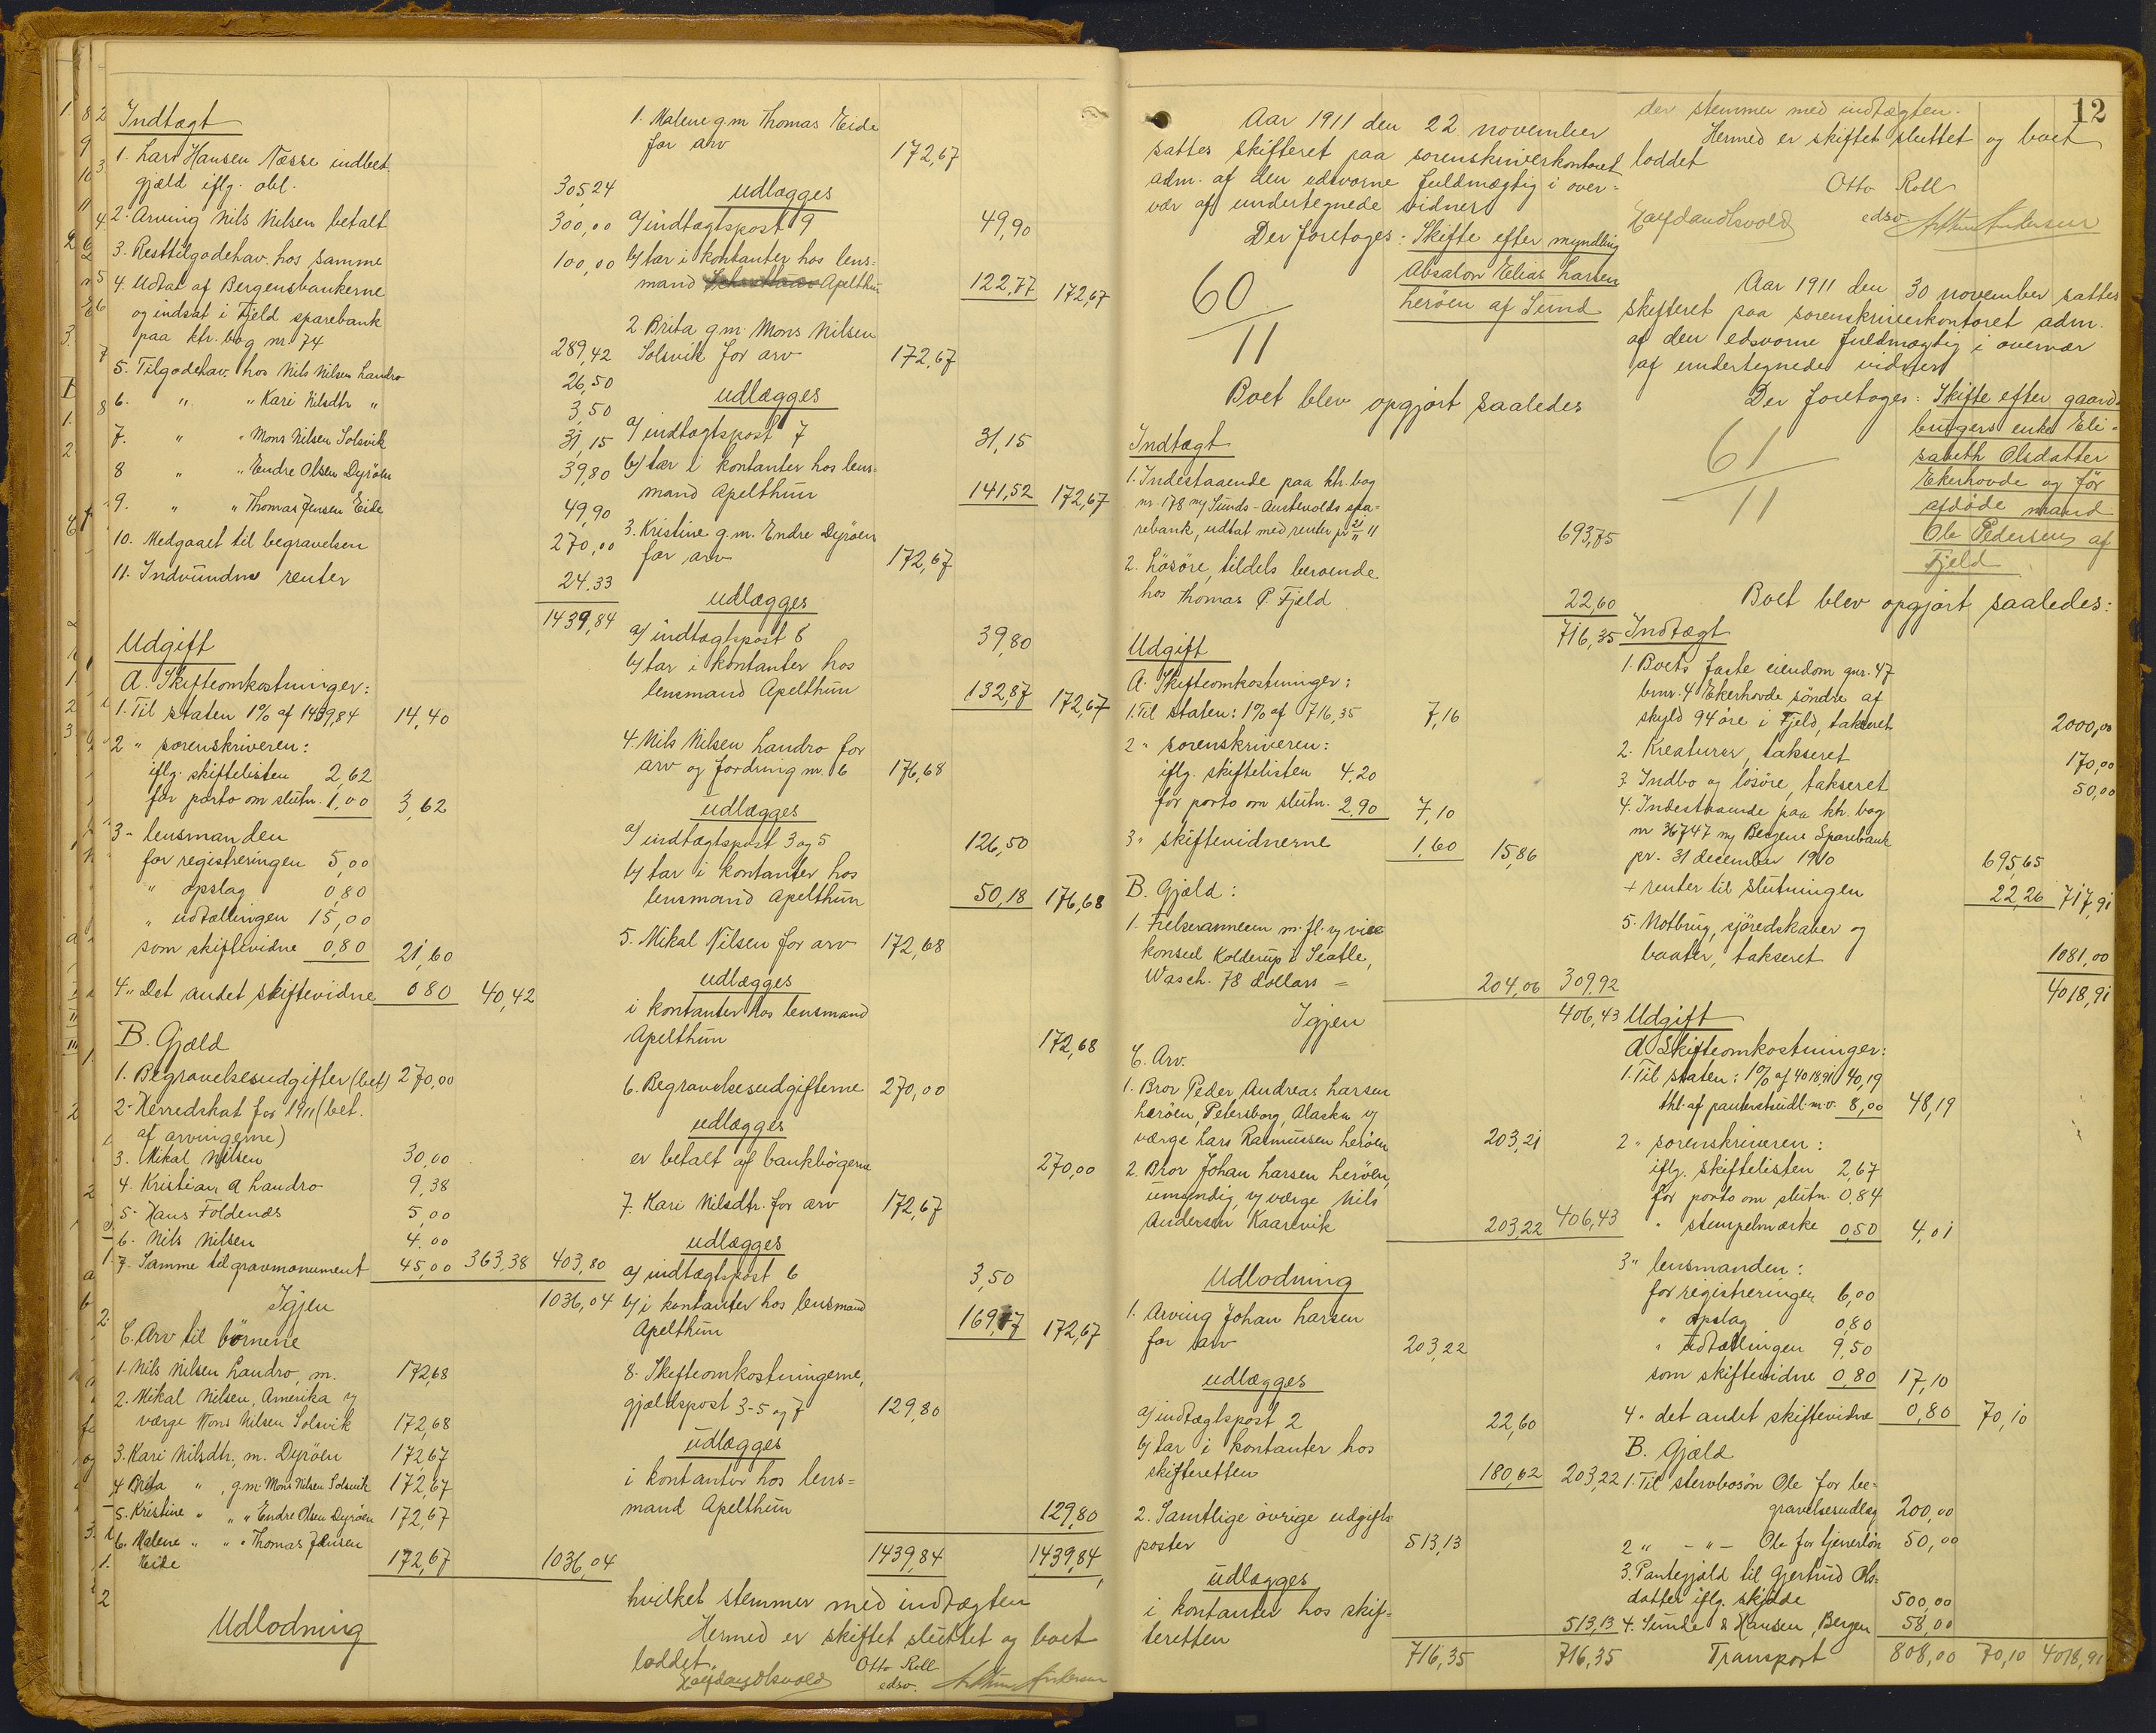 Indtægt
1. Lars Hansen Næsse indbet.
gjæld iflg. obl. 305,24
2. Arving Nils Nilsen betalt 300,00
3. Resttilgodehav. hos samme 100,00
4. Udtat af Bergensbankerne
og indsat i Fjeld sparebank
paa ktr. bog nr. 74 289,42
5. Tilgodehav. hos Nils Nilsen Landro 26,50
6. " " Kari Nilsdtr " 3,50
7. " " Mons Nilsen Solsvik 31,15
8 " " Endre Olsen Dyröen 39,80
9. " " Thomas Jensen Eide 49,90
10. Medgaaet til begravelsen 270,00
11. Indvundne renter 24,33
1439,84
Udgift
A. Skifteomkostninger:
1. Til staten 1% af 1439,84 14,40
2 " sorenskriveren:
iflg. skiftelisten 2,62
for porto om slutn. 1,00 3,62
3 " lensmanden
for registreringen 5,00
" opslag 0,80
" udlællingen 15,00
som skiftevidne 0,80 21,60
4 " Det andet skiftevidne 0 80 40,42
B. Gjæld
1. Begravelsesudgifter (bet) 270,00
2. Herredskat for 1911 (bet.
af arvingerne)
3. Mikal Nilsen 30,00
4. Kristian A Landro 9,38
5. Hans Foldenæs 5,00
6. Nils Nilsen 4,00
7. Samme til gravmonument 45,00 363,38 403,80
Igjen 1036,04
C. Arv til börnene
1. Nils Nilsen Landro, m. 172,68
2. Mikal Nilsen, Amerika v/
værge Mons Nilsen Solsvik 172,68
3. Kari Nilsdtr., m. Dyröen 172,67
4 Brita " , g.m. Mons Nilsen Solsvik 172,67
5. Kristine " " " Endre Olsen Dyröen 172,67
6. Malene " " " Thomas Jensen
Eide 172,67 1036,04
Udlodning
1. Malene g.m Thomas Eide
for arv 172,67
udlægges
a/ indtægtspost 9 49,90
b/ tar i kontanter hos lens-
mand Apelthun 122,77 172,67
2. Brita g.m. Mons Nilsen
Solsvik for arv 172,67
udlægges
a/ indtægtspost 7 31,15
b/ tar i kontanter hos lens-
mand Apelthun 141,52 172,67
3. Kristine g.m. Endre Dyröen
for arv 172,67
udlægges
a/ indtægtspost 8 39,80
b/ tar i kontanter hos
lensmand Apelthun 132,87 172,67
4. Nils Nilsen Landro for
arv og fordring nr. 6 176,68
udlægges
a/ indtægtspost 3 og 5 126,50
b/ tar i kontanter hos
lensmand Apelthun 50,18 176,68
5. Mikal Nilsen for arv 172,68
udlægges
i kontanter hos lensmand
Apelthun 172,68
6. Begravelsesudgifterne 270,00
udlægges
er betalt af bankbögerne 270,00
7. Kari Nilsdtr. for arv 172,67
udlægges
a/ indtægtspost 6 3,50
b/ i kontanter hos lensmand
Apelthun 169,17 172,67
8. Skifteomkostningerne,
gjældspost 3-5 og 7 129,80
udlægges
i kontanter hos lens=
mand Apelthun 129,80
1439,84 1439,84
hvilket stemmer med indtægten
Hermed er skiftet sluttet og boet
loddet.
Otto Roll
edsv.
12
Aar 1911 den 22 november
sattes skifteret paa sorenskriverkontoret
adm. af den edsvorne fuldmægtig i over=
vær af undertegnede vidner
Der foretoges: Skifte efter myndling
Absalon Elias Larsen
Leröen af Sund
60
11
Boet blev opgjort saaledes
Indtægt
1. Indestaaende paa ktr. bog
nr. 178 m/ Sunds-Austevolds spa=
rebank, udtat med renter pr 21/11 11 693,75
2. Lösöre, tildels beroende
hos Thomas P. Fjeld 22,60
716,35
Udgift
A. Skifteomkostninger:
1. Til staten: 1% af 716,35 7,16
2 " sorenskriveren:
iflg. skiftelisten 4,20
for porto om slutn. 2,90 7,10
3 " skiftevidnerne 1,60 15,86
B. Gjæld:
1. Frelsesarmeen m. fl. v/ vice
konsul Kolderup i Seatle,
Wasch. 78 dollars = 204,06 309,92
Igjen 406,43
C. Arv.
1. Bror Peder Andreas Larsen
Leröen, Petersborg, Alaska v/
værge Lars Rasmussen Leröen 203,21
2. Bror Johan Larsen Leröen,
umyndig, v/ værge Nils
Andersen Kaarevik 203,22 406,43
Udlodning
1. Arving Johan Larsen
for arv 203,22
udlægges
a/ indtægtspost 2 22,60
b/ tar i kontanter hos
skifteretten 180,62 203,22
2. Samtlige övrige udgifts-
poster 513,13
udlægges
i kontanter hos skif=
teretten 513,13
716,35 716,35
der stemmer med indtægten.
Hermed er skiftet sluttet og boet
loddet
Otto Roll
edsv.
Aar 1911 den 30 november sattes
skifteret paa sorenskriverkontoret adm.
af den edsvorne fuldmægtig i overvær
af undertegnede vidner
Der foretoges: Skifte efter gaard-
brugers enke Eli-
sabeth Olsdatter
Ekerhovde og för
afdöde mand
Ole Pedersen af
Fjeld
61
11
Boet blev opgjort saaledes:
Indtægt
1. Boets faste eiendom gnr. 47
bnr. 4 Ekerhovde söndre af
skyld 94 öre i Fjeld, takseret 2000,00
2. Kreaturer, takseret 170,00
3 Indbo og lösöre, takseret 50,00
4. Indestaaende paa ktr. bog
nr 36747 m/ Bergens Sparebank
pr. 31 december 1910 695,65
+ renter til slutningen 22,26 717,91
5. Notbrug, sjöredskaber og
baater, takseret 1081,00
4018,91
Udgift
A. Skifteomkostninger:
1. Til staten: 1% af 4018,91 40,19
thl. af panterstudl. m.v. 8,00 48,19
2 " sorenskriveren:
iflg. skiftelisten 2,67
for porto om slutn. 0,84
" stempelmærke 0,50 4,01
3 " lensmanden:
for registreringen 6,00
" opslag 0,80
" udlællingen 9,50
som skiftevidne 0,80 17,10
4 " det andet skiftevidne 0,80 70,10
B. Gjæld
1. Til stervbosön Ole for be-
gravelsesudlæg 200,00
2 " - " - Ole for tjenerlön 50,00
3. Pantegjæld til Gjertrud Ols-
datter iflg. skjöde 500,00
4. Sunde & Hansen, Bergen 58,00
Transport 808,00 70,10 4018,91